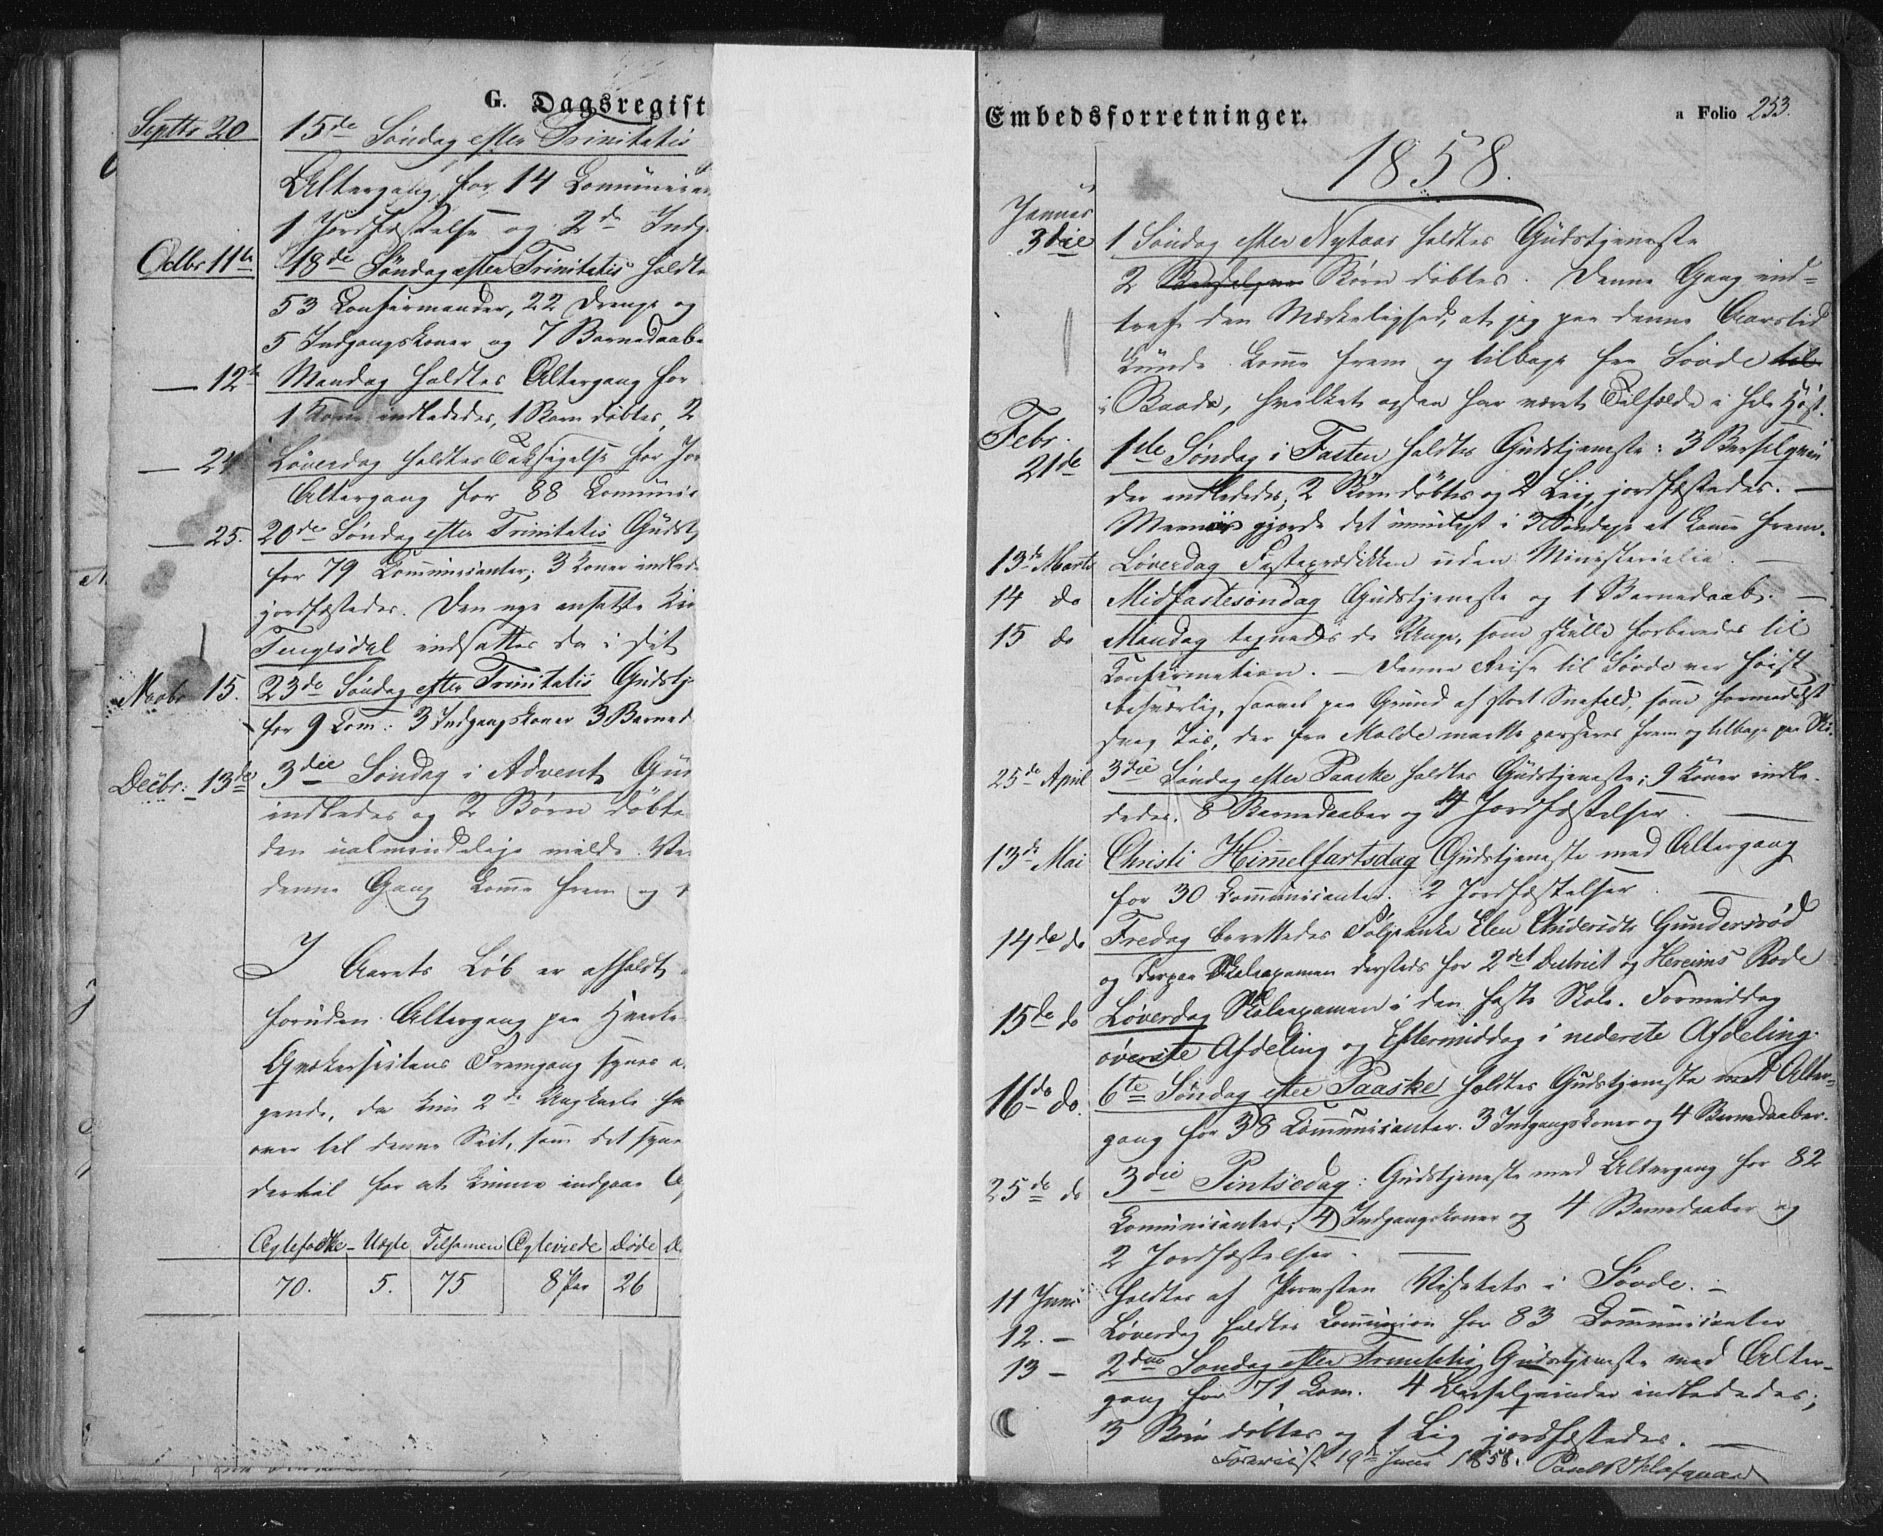 G. Dagsregist
Septbr 20
15de Søndag efter Trinitatis
Altergang for 14 Communican
1 Jordfæstelse og 2de Indg
Octbr 11te
18de Søndag efter Trinitatis holdte
53 Confirmander, 22 Drenge og
5 Indgangskoner og 7 Barnedaabe
— 12te
Mandag holdtes Altergang for
1 Kone indlededes, 1 Barn døbtes, 2
— 24
Løverdag holdtes Taksigelse for
Altergang for 88 Communic
— 25.
20de Søndag efter Trinitatis Gudst
for 79 Communicanter; 3 Koner indled
jordfæstedes. Den nye ansatte
Tengesdal indsattes da i sit
Novbr 15.
23de Søndag efter Trinitatis Gudstj
for 9 Com: 3 Indgangskoner 3 Barned
Decbr: 13de
3die Søndag i Advent Gud
indledes og 2 Børn døbte
den ualmindelige milde Ve
denne Gang komme frem og
I Aarets Løb er afholdt
foruden Altergang paa
Qvækersectens Fremgang synes
gende, da kun 2de Ungkarle
over til denne Sect, som det syne
dertil for at kunne indgaae
Ægtefødte Uægte Tilsamen Ægteviede Døde
70. 5. 75 8 Par 26
Embedsforretninger.
a Folio 253.
1858.
Januar
3die
1 Søndag efter Nytaar holdtes Gudstjeneste
2 Børn døbtes. Denne Gang ind=
traf den Mærkelighed, at jeg paa denne Aarstid
kunde komme frem og tilbage fra Søvde
i Baade, hvilket ogsaa har været Tilfælde i hele Høst.
Febr.
21de
1ste Søndag i Fasten holdtes Gudstjeneste: 3 Barselqvin
der indlededes, 2 Børn døbtes og 2 Liig jordfæstedes. —
gjorde det umuligt i 3 Søndage at komme frem.
13de Marts
Løverdag Fasteprædikken uden Ministerialia. —
14 do
Midfastesøndag Gudstjeneste og 1 Barnedaab. —
15 do
Mandag tegnedes de Unge, som skulle forberedes til
Confirmation. — Denne Reise til Søvde var høist
besværlig, saavel paa Grund af stort Snefald, som formedelst
svag Iis, der fra Molde maatte passeres frem og tilbage paa
25de April
3die Søndag efter Paaske holdtes Gudstjeneste; 9 Koner indle-
dedes. 8 Barnedaaber og 4 Jordfæstelser. —
13de Mai
Christi Himmelfartsdag Gudstjeneste med Altergang
for 30 Communicanter. 2 Jordfæstelser. —
14de do
Fredag berettedes Følgeenke Elen Gundersrød
og derpaa Skoleexamen dersteds for 2det District og Hereims Rode
15de do
Løverdag Skoleexamen i den faste Skole. Formiddag
øverste Afdeling og Eftermiddag i nederste Afdeling.
16de do.
6te Søndag efter Paaske holdtes Gudstjeneste med Alter=
gang for 38 Communicanter. 3 Indgangskoner og 4 Barnedaaber.
25de do
3die Pintsedag: Gudstjeneste med Altergang for 82
Comunicanter; 4 Indgangskoner og 4 Barnedaaber og
2 Jordfæstelser. —
11 Juni
holdtes af Provsten Visitats i Søvde. —
12. —
Løverdag holdtes Communion for 83 Communicanter
13 —
2den Søndag efter Trinitatis Gudstjeneste med Alter-
gang for 71 Com. 4 Barselqvinder indlededes;
3 Børn døbtes og 1 Lig jordfæstedes. —
Foreviist 19de Juni 1858.